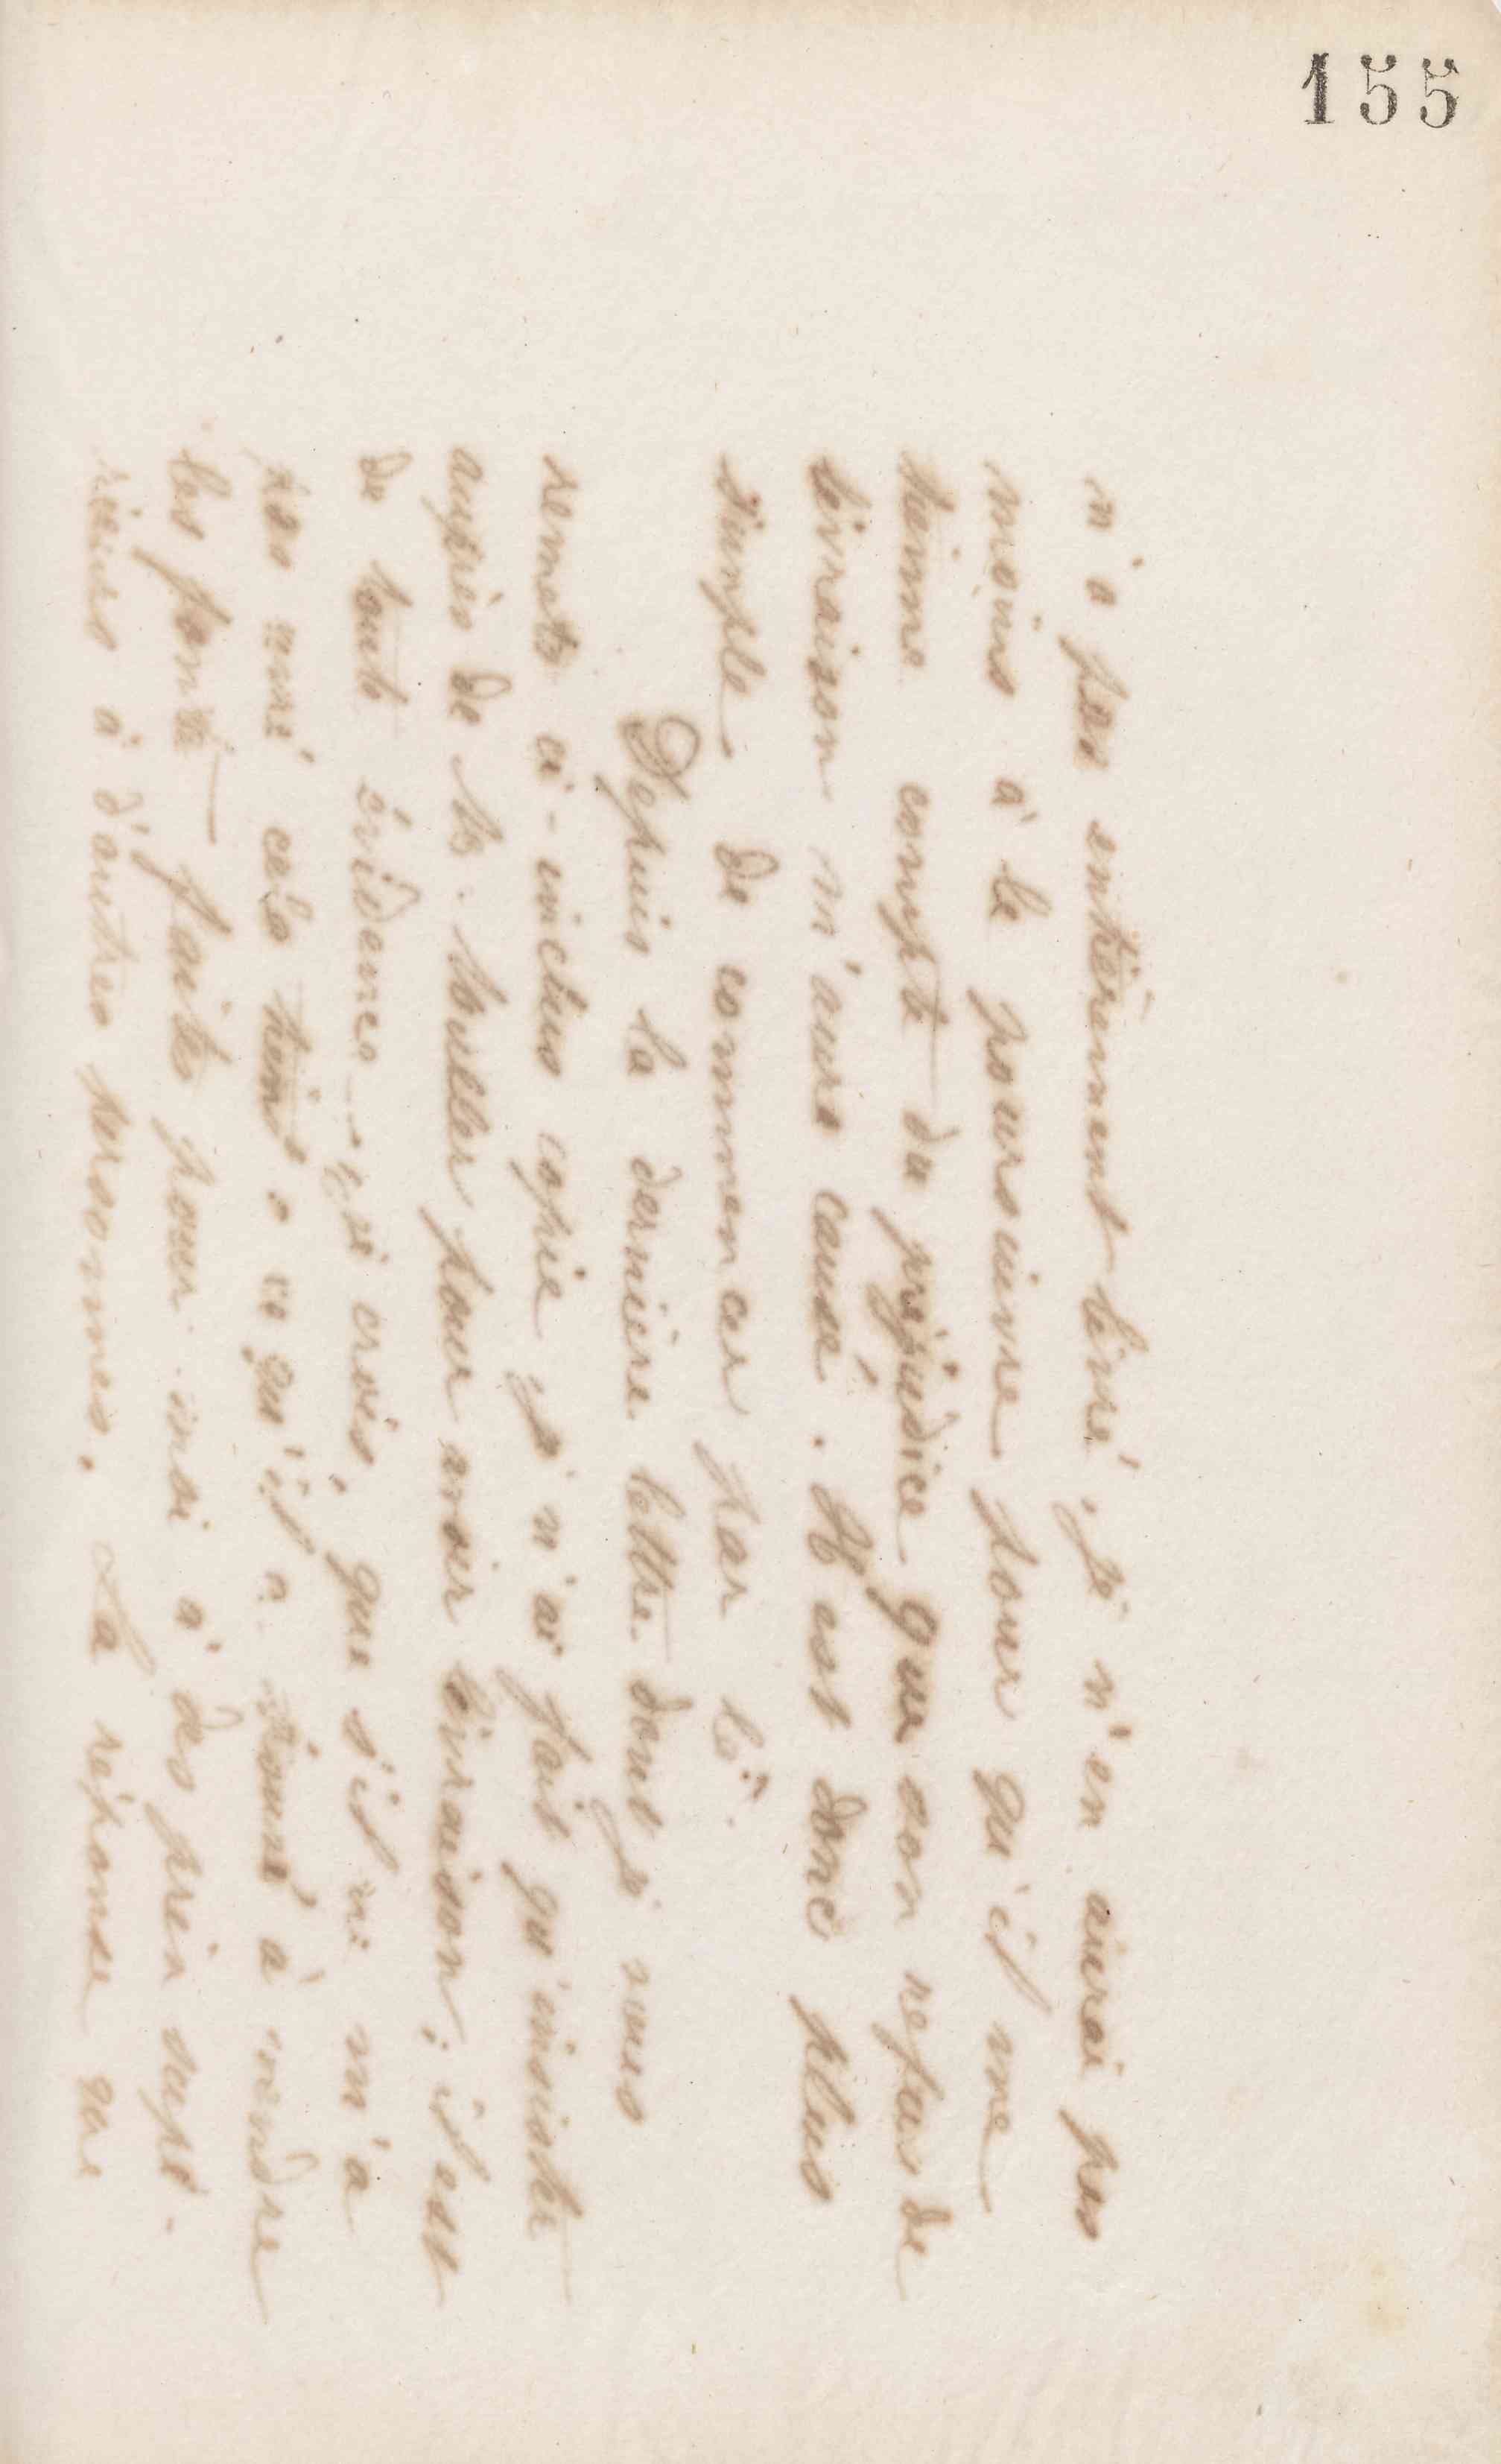 155
n'a pas entièrement livré, je n'en aurai pas
moins à le poursuivre pour qu'il me
tienne compte du préjudice que son refus de
livraison m'aura causé. Il est donc plus
simple de commencer par là.
Depuis la dernière lettre dont je vous
remets ci-inclus copie je n'ai fait qu'insister
auprès de M. Muller pour avoir livraison; il est
de toute évidence, je crois, que s'il ne m'a
pas livré cela tient à ce qu'il a à vendre
les fontes faites pour moi à des prix supé-
rieurs à d'autres personnes. La réponse que